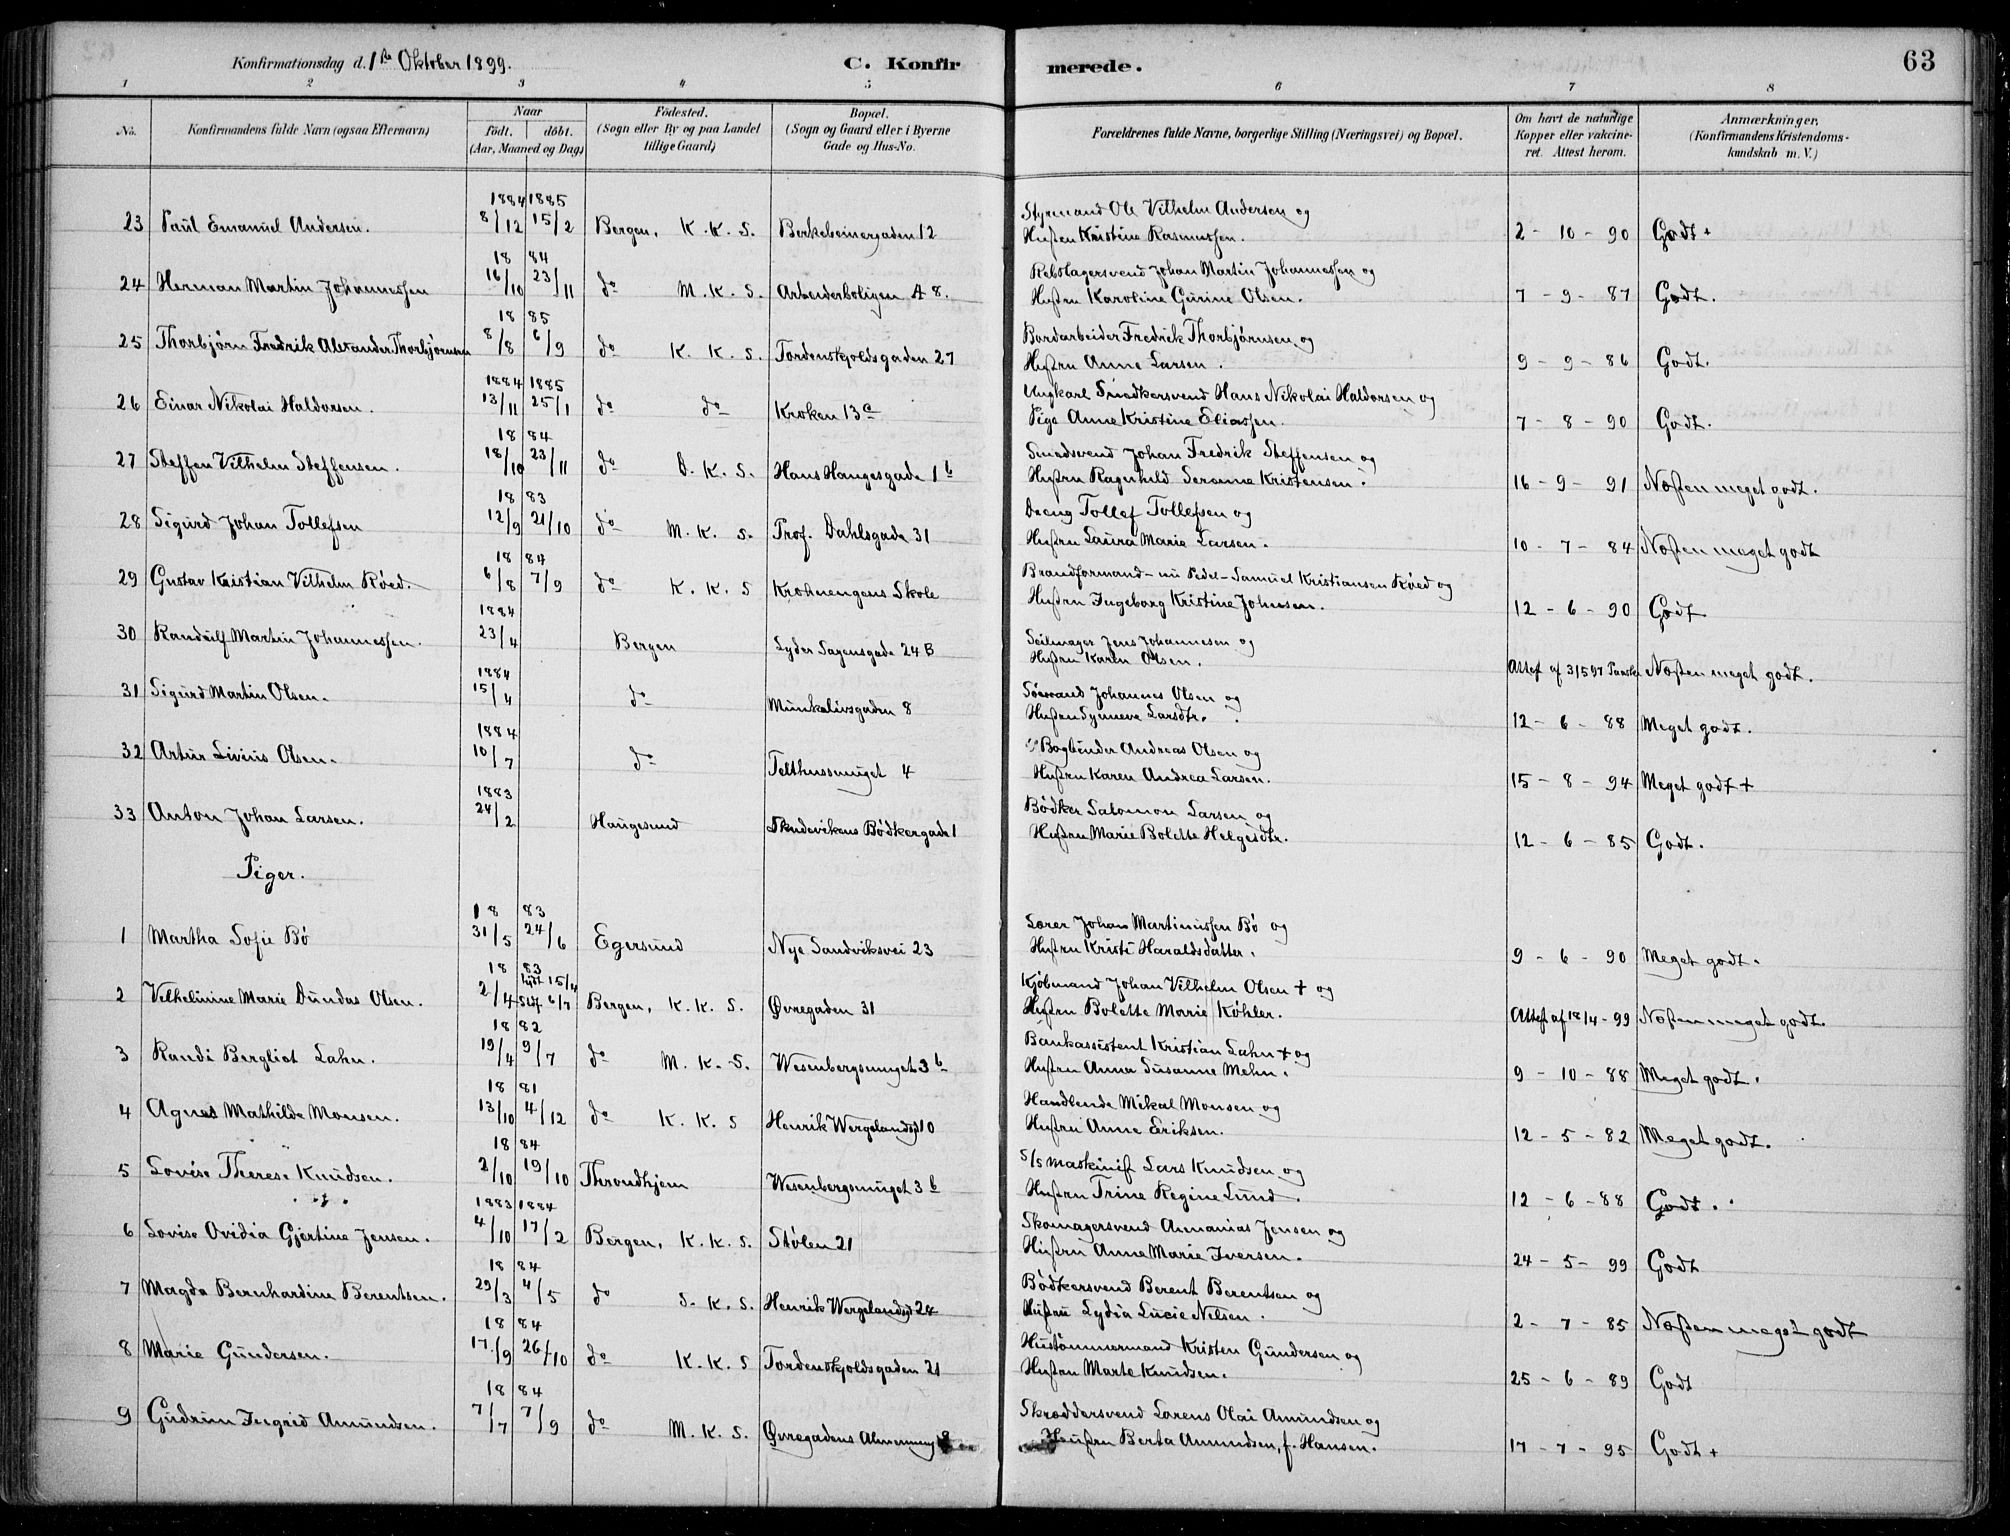 Konfirmationsdag d. 1ste Oktober 1899.
C. Konfirmerede.
63
1 2 3 4 5 6 7 8
No.
Konfirmandens fulde Navn (ogsaa Efternavn)
Naar
født. døbt.
(Aar, Maaned og Dag)
Fødested.
(Sogn eller By og paa Landet
tillige Gaard)
Bopæl.
(Sogn og Gaard eller i Byerne
Gade og Hus-No.
Forældrenes fulde Navne, borgerlige Stilling (Næringsvei) og Bopæl.
Om havt de naturlige
Kopper eller vakcine-
ret. Attest herom.
Anmærkninger,
(Konfirmandens Kristendoms-
kundskab m. V.)
1884 1885
23 Paul Emanuel Andersen. 8/12 15/2 Bergen, K.K.S. Berkebeinergaden 12 Styrmand Ole Vilhelm Andersen og
Hustru Kristine Rasmussen. 2 - 10 - 90 Godt +
18 84
24 Herman Martin Johannessen 16/10 23/11 do M.K.S. Arbeiderboligen A 8. Rebslagersvend Johan Martin Johannessen og
Hustru Karoline Gurine Olsen. 7 - 9 - 87 Godt.
18 85
25 Thorbjørn Fredrik Alexander Thorbjørnsen 8/8 6/9 do K.K.S. Tordenskjoldsgaden 27 Bordarbeider Fredrik Thorbjørnsen og
Hustru Anne Larsen. 9 - 9 - 86 Godt.
1884 1885
26 Einar Nikolai Haldorsen. 13/11 25/1 do do Kroken 13a Ungkarl Snedkersvend Hans Nikolai Haldorsen og
Pige Anne Kristine Eliassen. 7 - 8 - 90 Godt.
18 84
27 Steffen Vilhelm Steffensen. 18/10 23/11 do D.K.S. Hans Haugesgade 1b Smedsvend Johan Fredrik Steffensen og
Hustru Ragnhild Seranne Kristensen. 16 - 9 - 91 Næsten meget godt.
18 83
28 Sigurd Johan Tollefsen 12/9 21/10 do M.K.S. Prof. Dahlsgade 31 Dreng Tollef Tollefsen og
Hustru Laura Marie Larsen. 10 - 7 - 84 Næsten meget godt
18 84
29 Gustav Kristian Vilhelm Røed. 6/8 7/9 do K.K.S Krohnengens Skole Brandformand - nu Pedel - Samuel Kristiansen Røed og
Hustru Ingeborg Kristine Johnsen. 12 - 6 - 90 Godt
1884
30 Randulf Martin Johannessen. 23/4 Bergen Lyder Sagensgade 24 B Seilmager Jens Johannesen og
Hustru Karen Olsen. Attest af 31597 Næsten meget godt.
1884
31 Sigurd Martin Olsen. 15/4 do Munkelivsgaden 8 Sømand Johannes Olsen og
Hustru Synneve Larsdtr. 12 - 6 - 88 Meget godt.
1884
32 Artur Livius Olsen. 10/7 do Telthussmuget 4 Bogbinder Andreas Olsen og
Hustru Karen Andrea Larsen. 15 - 8 - 94 Meget godt +
1883
33 Anton Johan Larsen. 24/2 Haugesund Skudevikens Bødkergade 1 Bødker Salomon Larsen og
Hustru Marie Bolette Helgesdtr. 12 - 6 - 85 Godt.
Piger.
18 83
1 Martha Sofie Bø 31/5 24/6 Egersund Nye Sandviksvei 23 Lærer Johan Martinussen Bø og
Hustru Kristi Haraldsdatter. 9 - 6 - 90 Meget godt.
18 83
2 Vilhelmine Marie Dundas Olsen. 2/4 15/4 6/7 Bergen, K.K.S. Øvregaden 31 Kjøbmand Johan Vilhelm Olsen + og
Hustru Bolette Marie Køhler. Attest af 18/4 - 99 Næsten meget godt.
18 82
3 Randi Bergliot Lahn. 19/4 9/7 do M.K.S. Wesenbergsmuget 3b Bankassistent Kristian Lahn + og
Hustru Anna Susanne Mehn. 9 - 10 - 88 Meget godt.
18 81
4 Agnes Mathilde Monsen. 13/10 4/12 do K.K.S Henrik Wergelandsgd 10 Handlende Mikal Monsen og
Hustru Anne Eriksen. 12 - 5 - 82 Meget godt.
18 84
5 Lovise Therese Knudsen. 2/10 19/10 Throndhjem Wesenbergsmuget 3b S/S Maskinist Lars Knudsen og
Hustru Trine Regine Lund. 12 - 6 - 88 Godt.
1883 1884
6 Lovise Ovidia Gjertine Jensen. 4/10 17/2 Bergen, K.K.S. Stølen 21 Skomagersvend Annanias Jensen og
Hustru Anne Marie Iversen. 24 - 5 - 99 Godt
18 84
7 Magda Bernhardine Berentsen. 29/3 4/5 do S.K.S. Henrik Wergelandsgd 24 Bødkersvend Berent Berentsen og
Hustru Lydia Lucie Nilsen. 2 - 7 - 85 Næsten meget godt
18 84
8 Marie Gundersen. 17/9 26/10 do K.K.S Tordenskjoldsgaden 21 Hustømmermand Kristen Gundersen og
Hustru Marte Knudsen. 25 - 6 - 89 Godt
18 84
9 Gudrun Ingrid Amundsen. 7/7 7/9 do M.K.S. Øvregadens Almenning Skræddersvend Lorens Olai Amundsen og
Hustru Berta Amundsen, f. Hansen. 17 - 7 - 95 Godt +